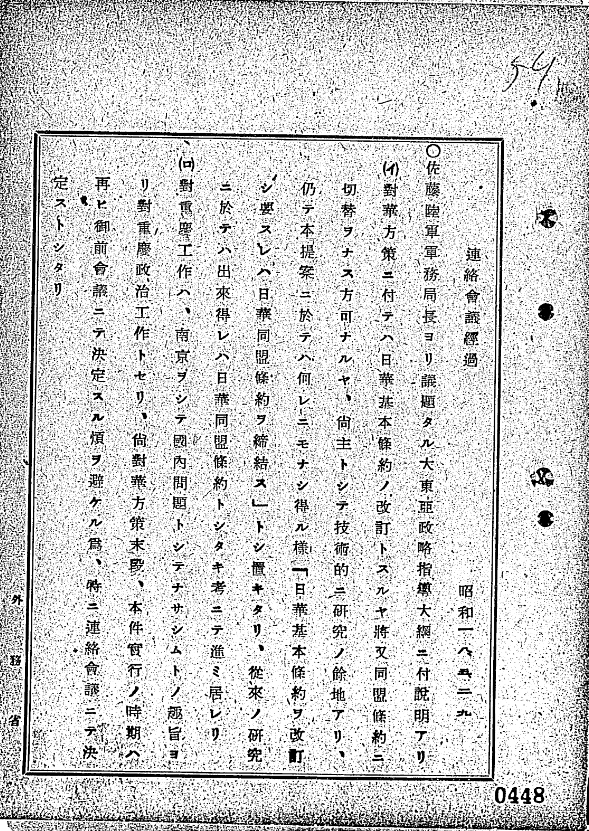 54
連絡會議經過
昭和一八、五、二九
〇佐藤陸軍軍務局長ヨリ議題タル大東亞政略指導大綱ニ付説明アリ
(イ)對華方策ニ付テハ日華基本條約ノ改訂トスルヤ將又同盟條約ニ
切替ヲナス方可ナルヤ、尙主トシテ技術的ニ研究ノ餘地アリ、
仍テ本提案ニ於テハ何レニモナシ得ル樣「日華基本條約ヲ改訂
シ要スレハ日華同盟條約ヲ締結ス」トシ置キタリ、從來ノ研究
ニ於テハ出來得レハ日華同盟條約トシタキ考ニテ進ミ居レリ
(ロ)對重慶工作ハ、南京ヲシテ國內問題トシテナサシムトノ趣旨ヨ
リ對重慶政治工作トセリ、尙對華方策末段、本件實行ノ時期ハ
再ヒ御前會議ニテ決定スル煩ヲ避ケル爲、特ニ連絡會議ニテ決
定ストシタリ
外務省
0448